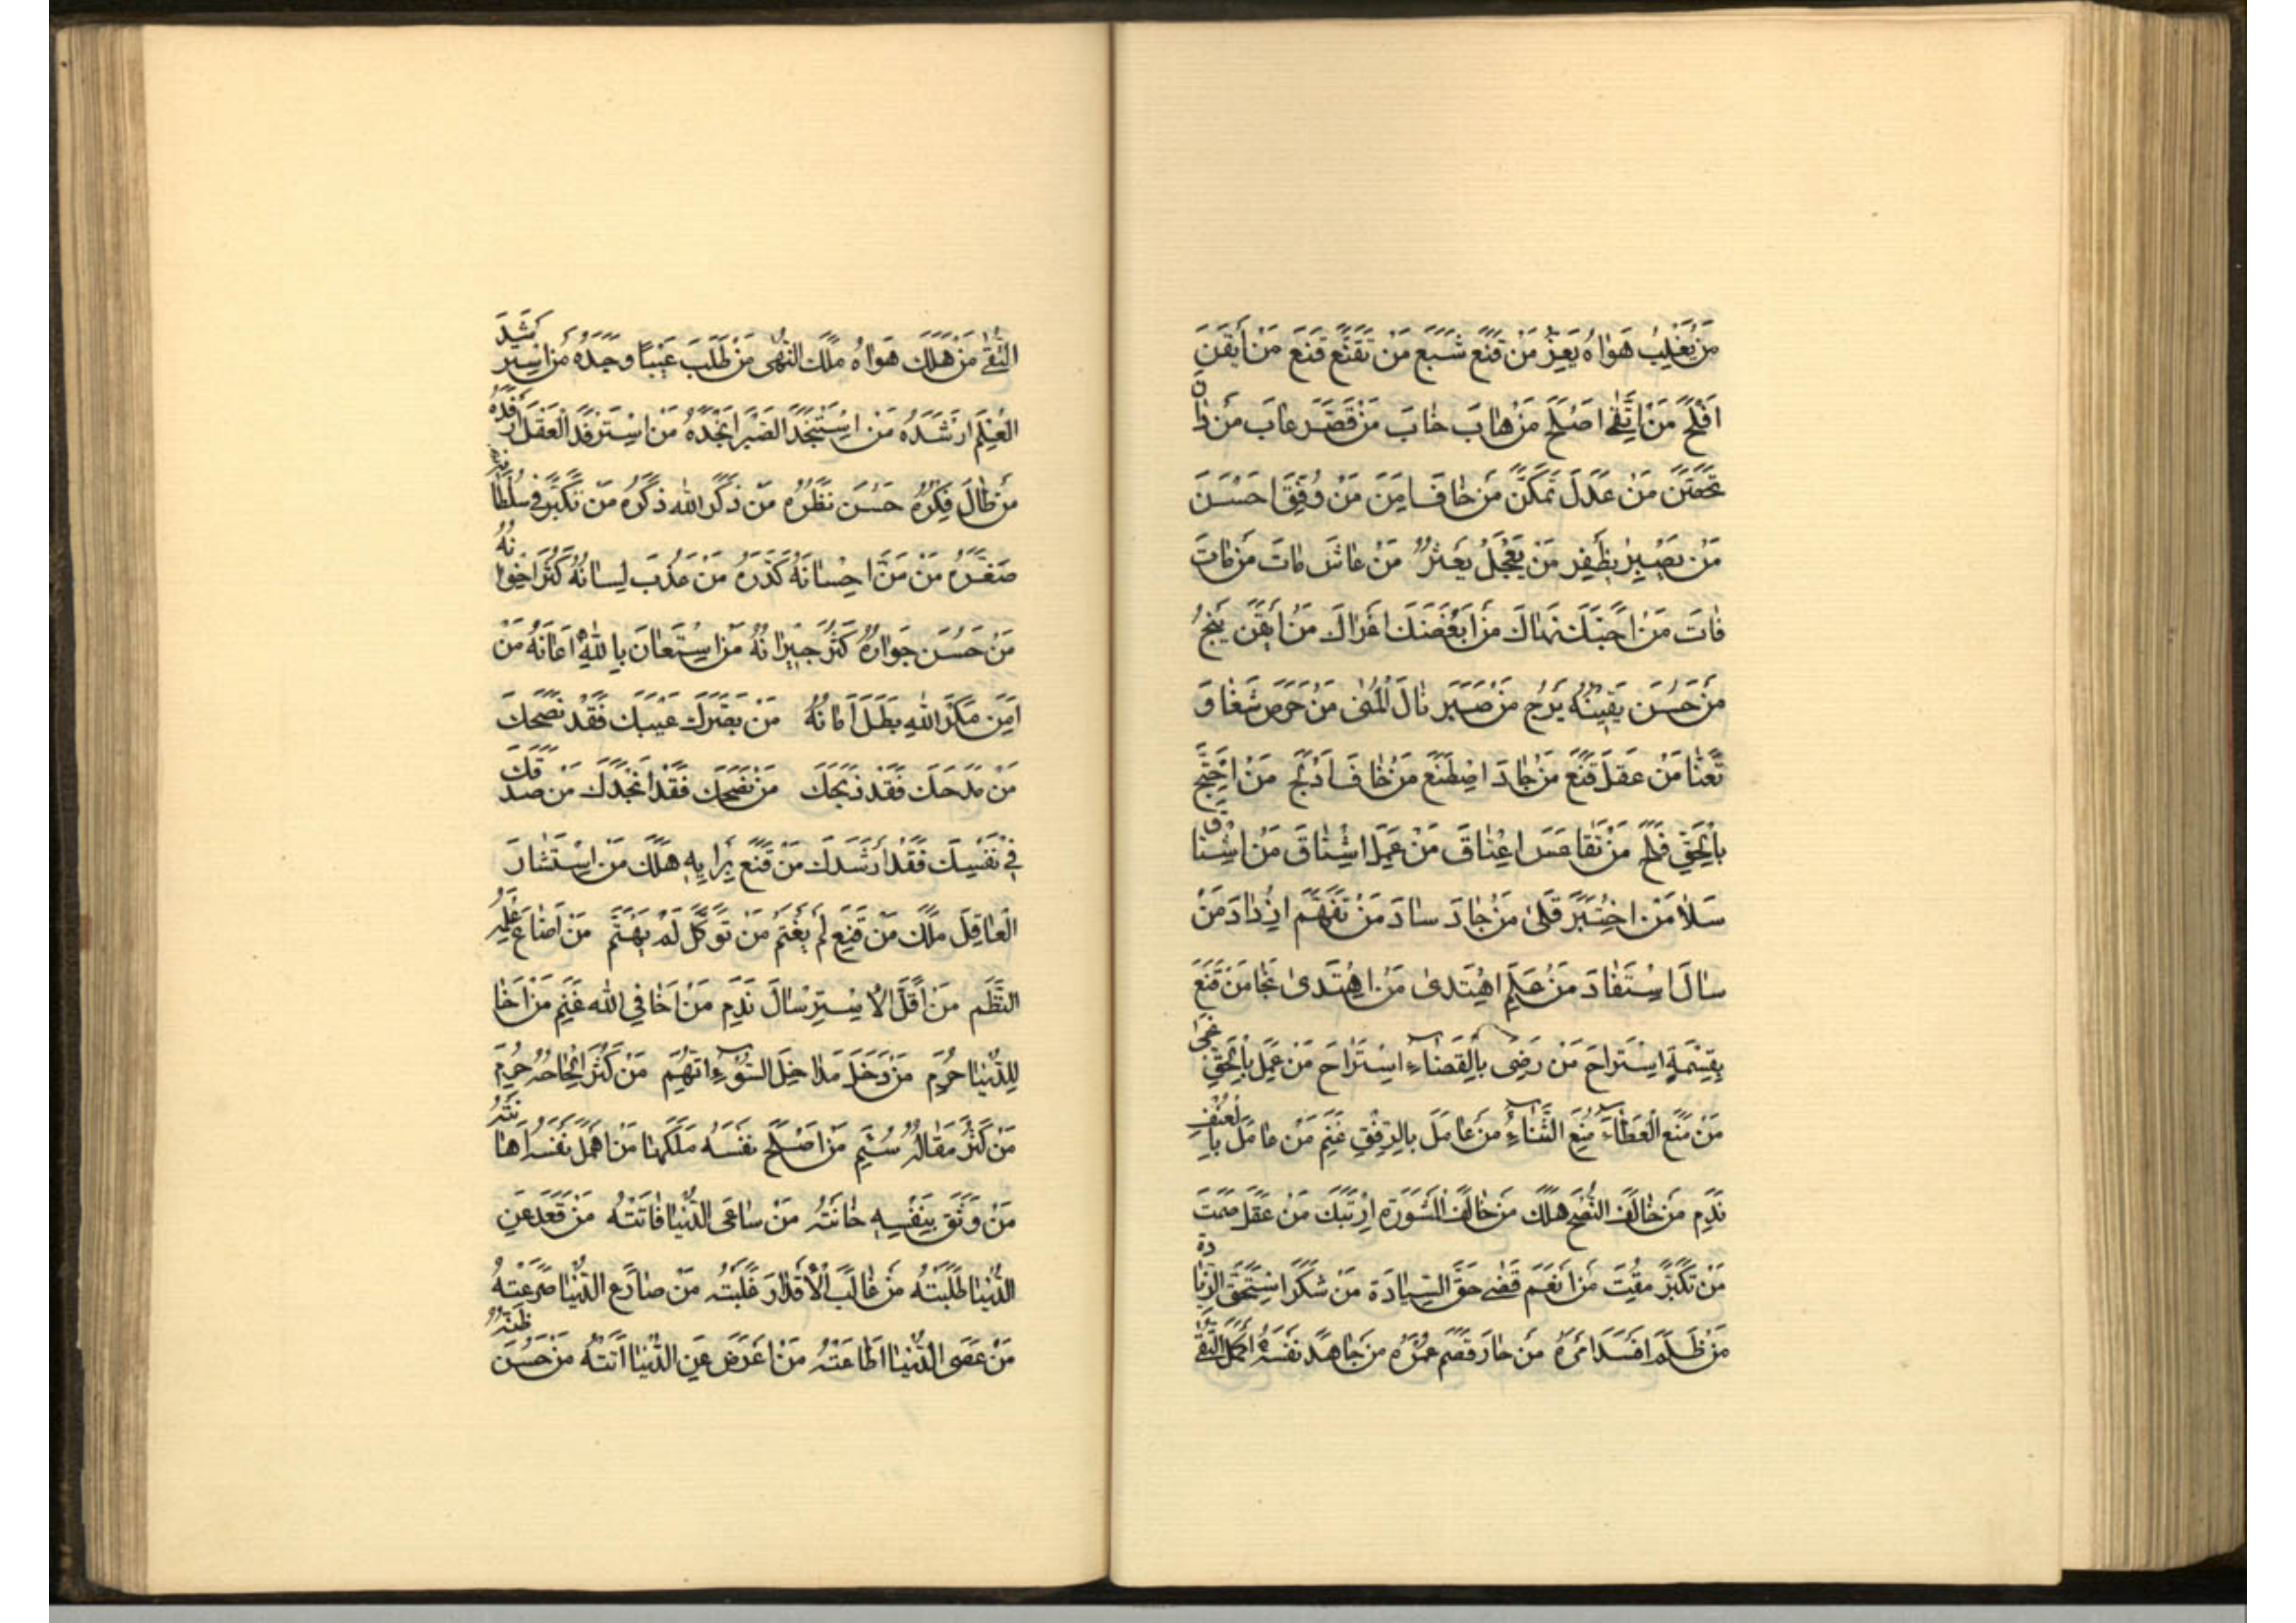 مَنْ يَغْلِبْ هَوٰاهُ يَعِزَّ مَنْ قَنَعَ شَبَعَ مَنْ تَقَنَّعَ قَنَعَ مَنْ أَيْقَنَ
اَفْلَحَ مَنْ اِتَّقىٰ اَصْلَحَ مَنْ هٰابَ خٰابَ مَنْ قَصَّرَ عٰابَ مَنْ
مَنْ عَدَلَ تَمَكَّنَ مَنْ خٰافَ اَمِنَ مَنْ وُفِّقَ اَحْسَنَ
مَنْ يَصْبِرْ يَظْفِرْ مَنْ يَعْجَلْ يَعْثَرْ مَنْ عٰاشَ مٰاتَ مَنْ مٰاتَ
فٰاتَ مَنْ اَحَبَّكَ نَهٰاكَ مَنْ اَبْغَضَكَ اَغْرٰاكَ مَنْ اَيْقَنَ يَنْجُ
مَنْ حَسُنَ يَقينُهُ يَرْجُ مَنْ صَبَرَ نٰالَ الْمُنىٰ مَنْ حَرَصَ شَقٰا وَ
تَعَنّٰا مَنْ عَقَلَ قَنَعَ مَنْ جٰادَ اصْطَنَعَ مَنْ خٰافَ اَدْلَجَ مَنْ احْتَجَّ
بِالْحَقِّ فَلَجَ مَنْ تَقٰاعَسَ اعْتٰاقَ مَنْ عَمِلَ اشْتٰاقَ مَنْ اشْتٰاقَ
سَلاٰ مَنْ اخْتَبَرَ قَلىٰ مَنْ جٰادَ سٰادَ مَنْ تَفَهَّمَ ازْدٰادَ مَنْ
سٰالَ اسْتَفٰادَ مَنْ عَلِمَ اهْتَدىٰ مَنْ اهْتَدىٰ نَجٰا مَنْ قَنَعَ
بِقِسْمَةٍ اسْتَرٰاحَ مَنْ رَضِيَ بِالْقَضٰاءِ اسْتَرٰاحَ مَنْ عَمِلَ بِالْحَقِّ نَجىٰ
مَنْ مَنَعَ الْعَطٰاءَ مُنِعَ الثَّنٰاءَ مَنْ عٰامَلَ بِالرِّفْقِ غَنِمَ مَنْ عٰامَلَ بِالْعُنْفِ
نَدِمَ مَنْ خٰالَفَ النُّصْحَ هَلَكَ مَنْ خٰالَفَ الْمَشْوَرَةَ ارْتَبَكَ مَنْ عَقَلَ صَمَتَ
مَنْ تَكَبَّرَ مُقِتَ مَنْ اَنْعَمَ قَضىٰ حَقَّ السِّيٰادَةِ مَنْ شَكَرَ اسْتَحَقَّ الزِّيٰادَةَ
مَنْ ظَلَمَ اَفْسَدَ اَمْرَهُ مَنْ جٰارَ قَصَمَ عُمْرَهُ مَنْ جٰاهَدَ نَفْسَهُ اَكْمَلَ التُّقىٰ
التُّقىٰ مَنْ مَلَكَ هَوٰاهُ مَلَكَ النُّهىٰ مَنْ طَلَبَ عَيْبًا وَجَدَهُ مَنْ اسْتَرْشَدَ
الْعِلْمَ اَرْشَدَهُ مَنْ اسْتَنْجَدَ الصَّبْرَ اَنْجَدَهُ مَنْ اسْتَرْفَدَ الْعَقْلَ اَرْفَدَهُ
مَنْ طٰالَ فِكْرُهُ حَسُنَ نَظَرُهُ مَنْ ذَكَرَ اللّٰهَ ذَكَرَهُ مَنْ تَكَبَّرَ فِي سُلْطٰانِهِ
صَغَّرَهُ مَنْ مَنَّ اِحْسٰانَهُ كَدَّرَهُ مَنْ عَذُبَ لِسٰانُهُ كَثُرَ اِخْوٰانُهُ
مَنْ حَسُنَ جَوٰارُهُ كَثُرَ جِيرٰانُهُ مَنْ اسْتَعٰانَ بِاللّٰهِ اَعٰانَهُ مَنْ
اَمِنَ مَكْرَ اللّٰهِ بَطَلَ اَمٰانُهُ مَنْ بَصَّرَكَ عَيْبَكَ فَقَدْ نَصَحَكَ
مَنْ مَدَحَكَ فَقَدْ ذَبَحَكَ مَنْ نَصَحَكَ فَقَدْ اَنْجَدَكَ مَنْ صَدَقَكَ
فِي نَفْسِكَ فَقَدْ اَرْشَدَكَ مَنْ قَنَعَ بِرَايِهِ هَلَكَ مَنْ اسْتَشٰارَ
الْعٰاقِلَ مَلَكَ مَنْ قَنِعَ لَمْ يَغْتَمَّ مَنْ تَوَكَّلَ لَمْ يَهْتَمَّ مَنْ اَضٰاعَ عِلْمَهُ
التَّظَمَ مَنْ اَقَلَّ الاِسْتِرْسٰالَ نَدِمَ مَنْ اَخٰا فِي اللّٰهِ غَنِمَ مَنْ اَخٰا
لِلدُّنْيٰا حُرِمَ مَنْ دَخَلَ مَدٰاخِلَ السُّوْءِ اتُّهِمَ مَنْ كَثُرَ اِلْحٰاحُهُ حُرِمَ
مَنْ كَثُرَ مَقٰالُهُ سُئِمَ مَنْ اَصْلَحَ نَفْسَهُ مَلَكَهٰا مَنْ اَهْمَلَ نَفْسَهُ اَهٰانَتْهُ
مَنْ وَثِقَ بِنَفْسِهِ خٰانَتْهُ مَنْ سٰاعَى الدُّنْيٰا فٰاتَتْهُ مَنْ قَعَدَ عَنِ
الدُّنْيٰا طَلَبَتْهُ مَنْ غٰالَبَ الْاَقْدٰارَ غَلَبَتْهُ مَنْ صٰارَعَ الدُّنْيٰا صَرَعَتْهُ
مَنْ عَصَى الدُّنْيٰا اَطٰاعَتْهُ مَنْ اَعْرَضَ عَنِ الدُّنْيٰا اَتَتْهُ مَنْ حَسُنَ ظَنُّهُ